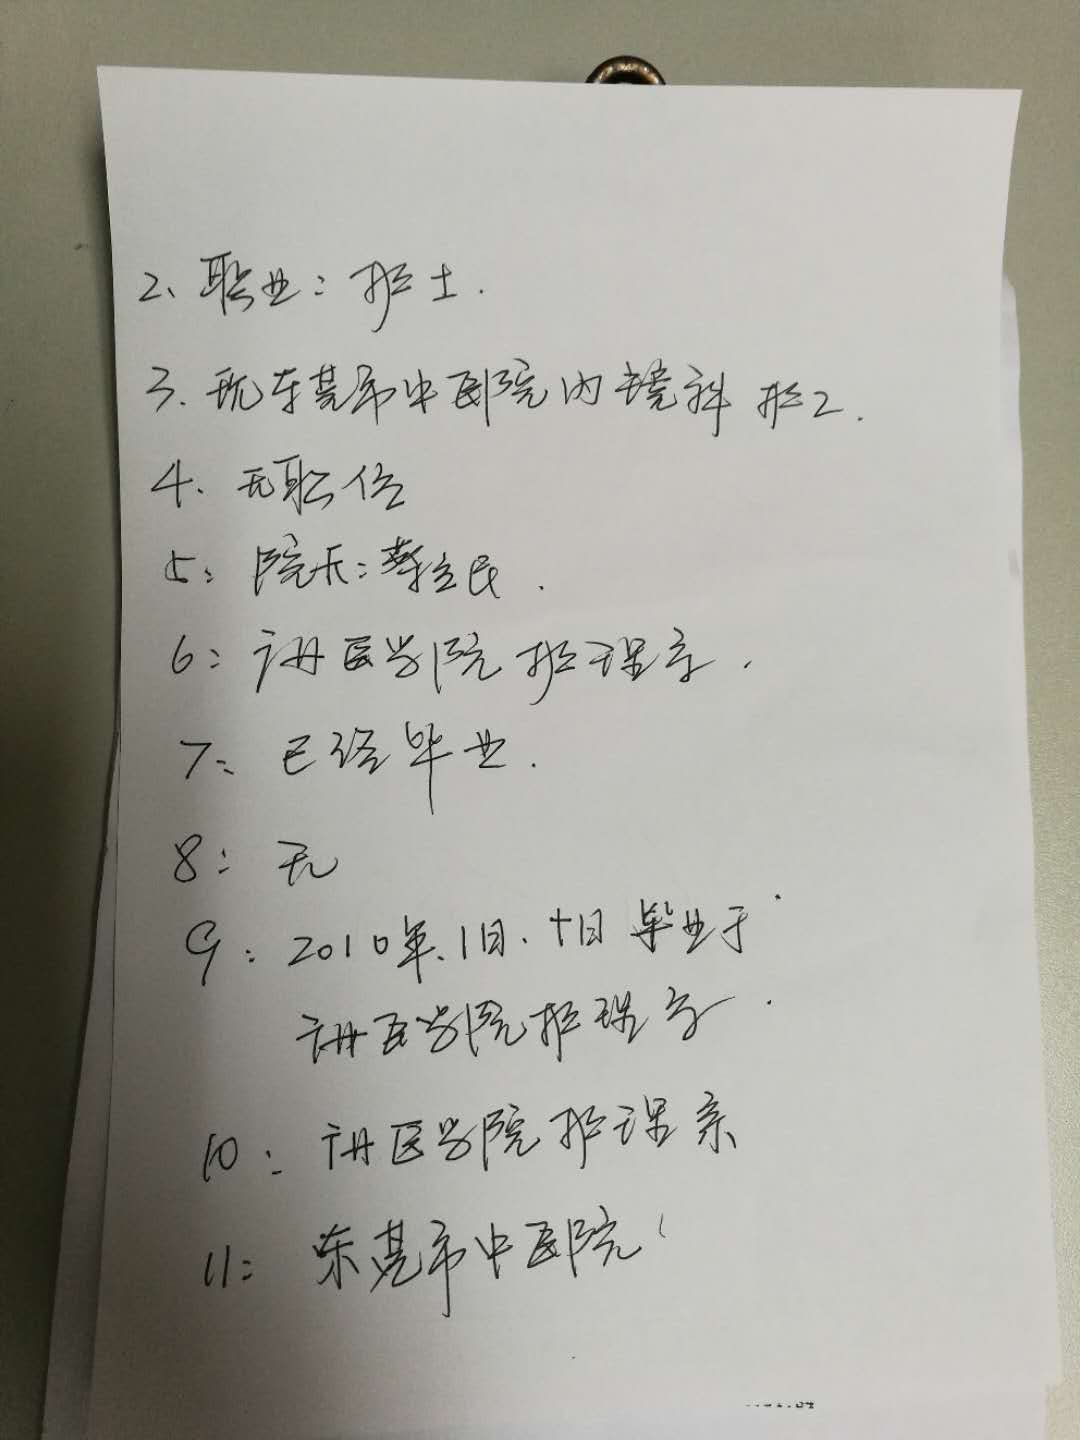 2、职业：护士.
3.现东莞市中医院内镜科护工.
4.无职位
5：院长：蔡立民.
6：医学院护理系.
7：已经毕业.
8：无
9：2010年.1日.十日毕业于
医学院护理系.
10：医学院护理系
11：东莞市中医院